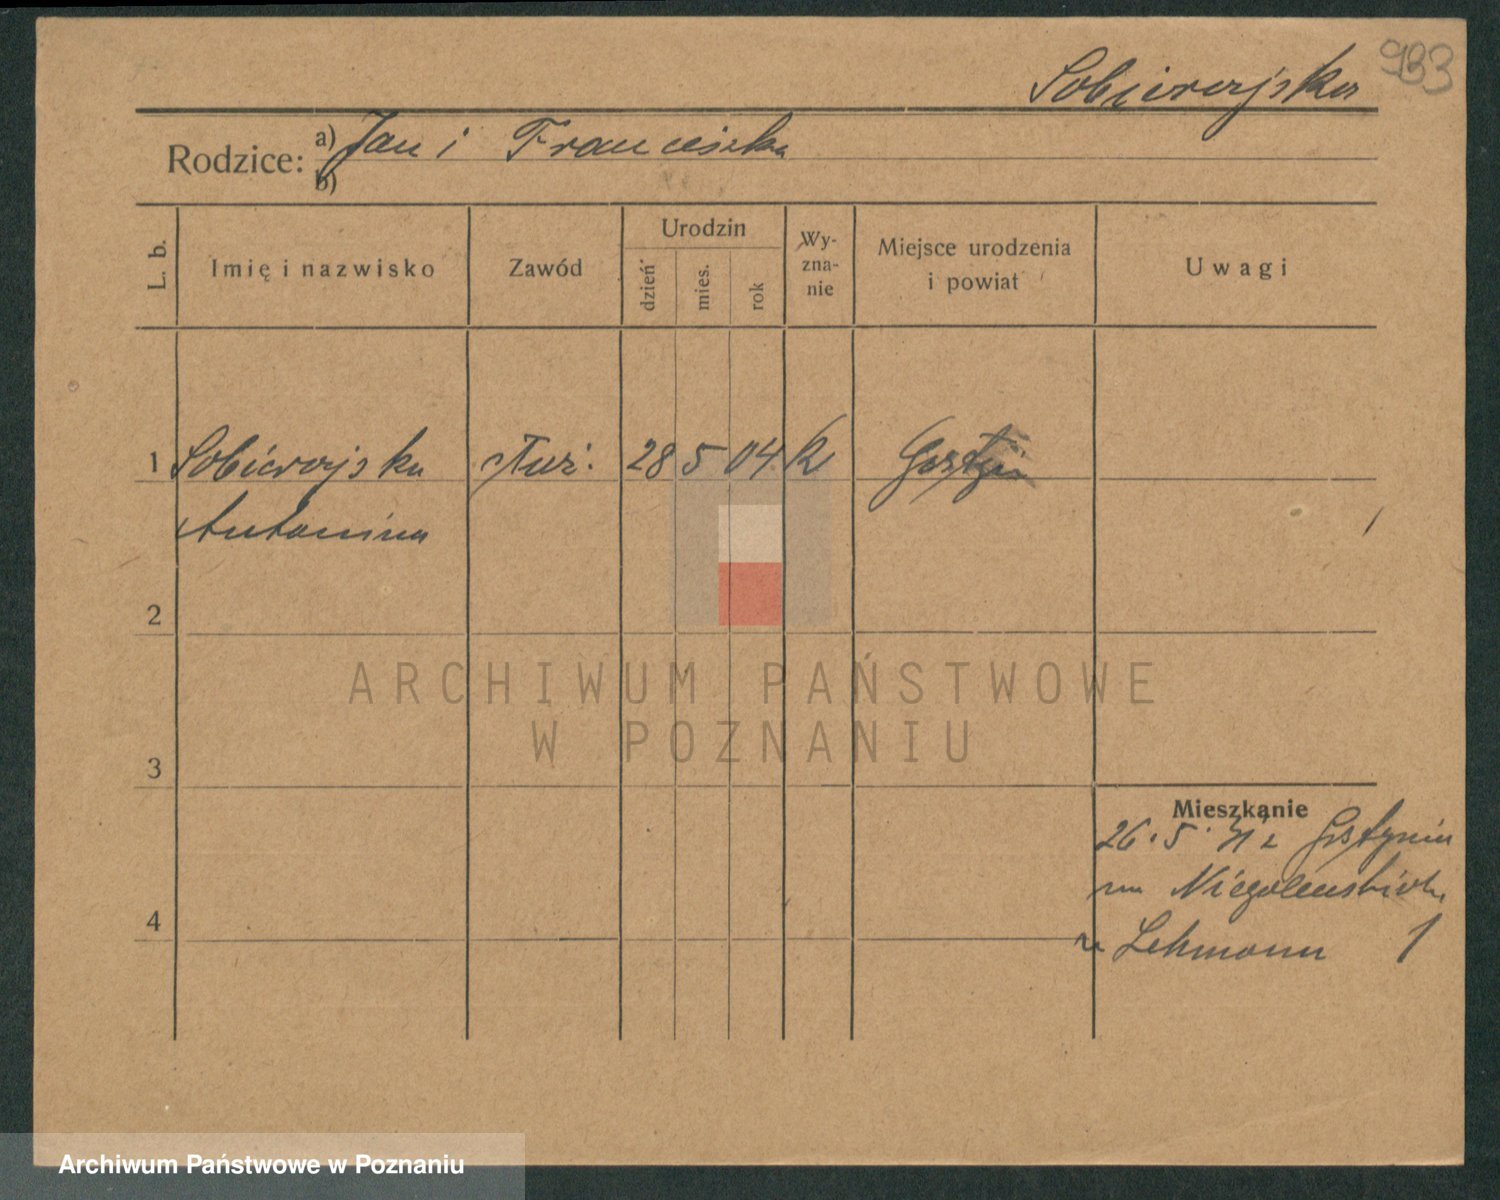 933
Sobierajska
Rodzice: a) Jan i Franciszka
b)
L. b. Imię i nazwisko Zawód Urodzin dzień mies. rok Wy-zna-nie Miejsce urodzenia i powiat Uwagi
1 Sobierajska 28 5 04 k Gostyń
Antonina
2
ARCHIWUM PAŃSTWOWE
W POZNANIU
3
Mieszkanie
26. 5. z Gostynia
na
4
Lehmann
Archiwum Państwowe w Poznaniu